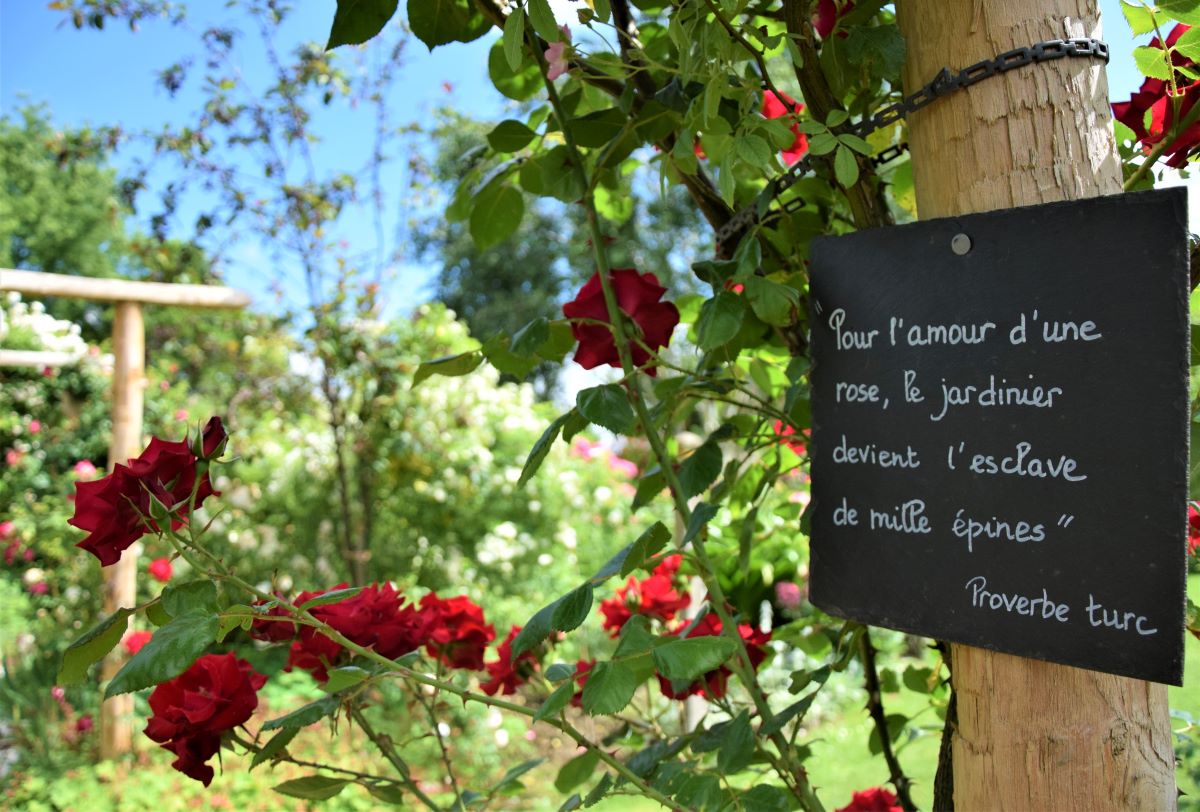 "Pour l'amour d'une
rose, le jardinier
devient l'esclave
de mille épines"
Proverbe turc